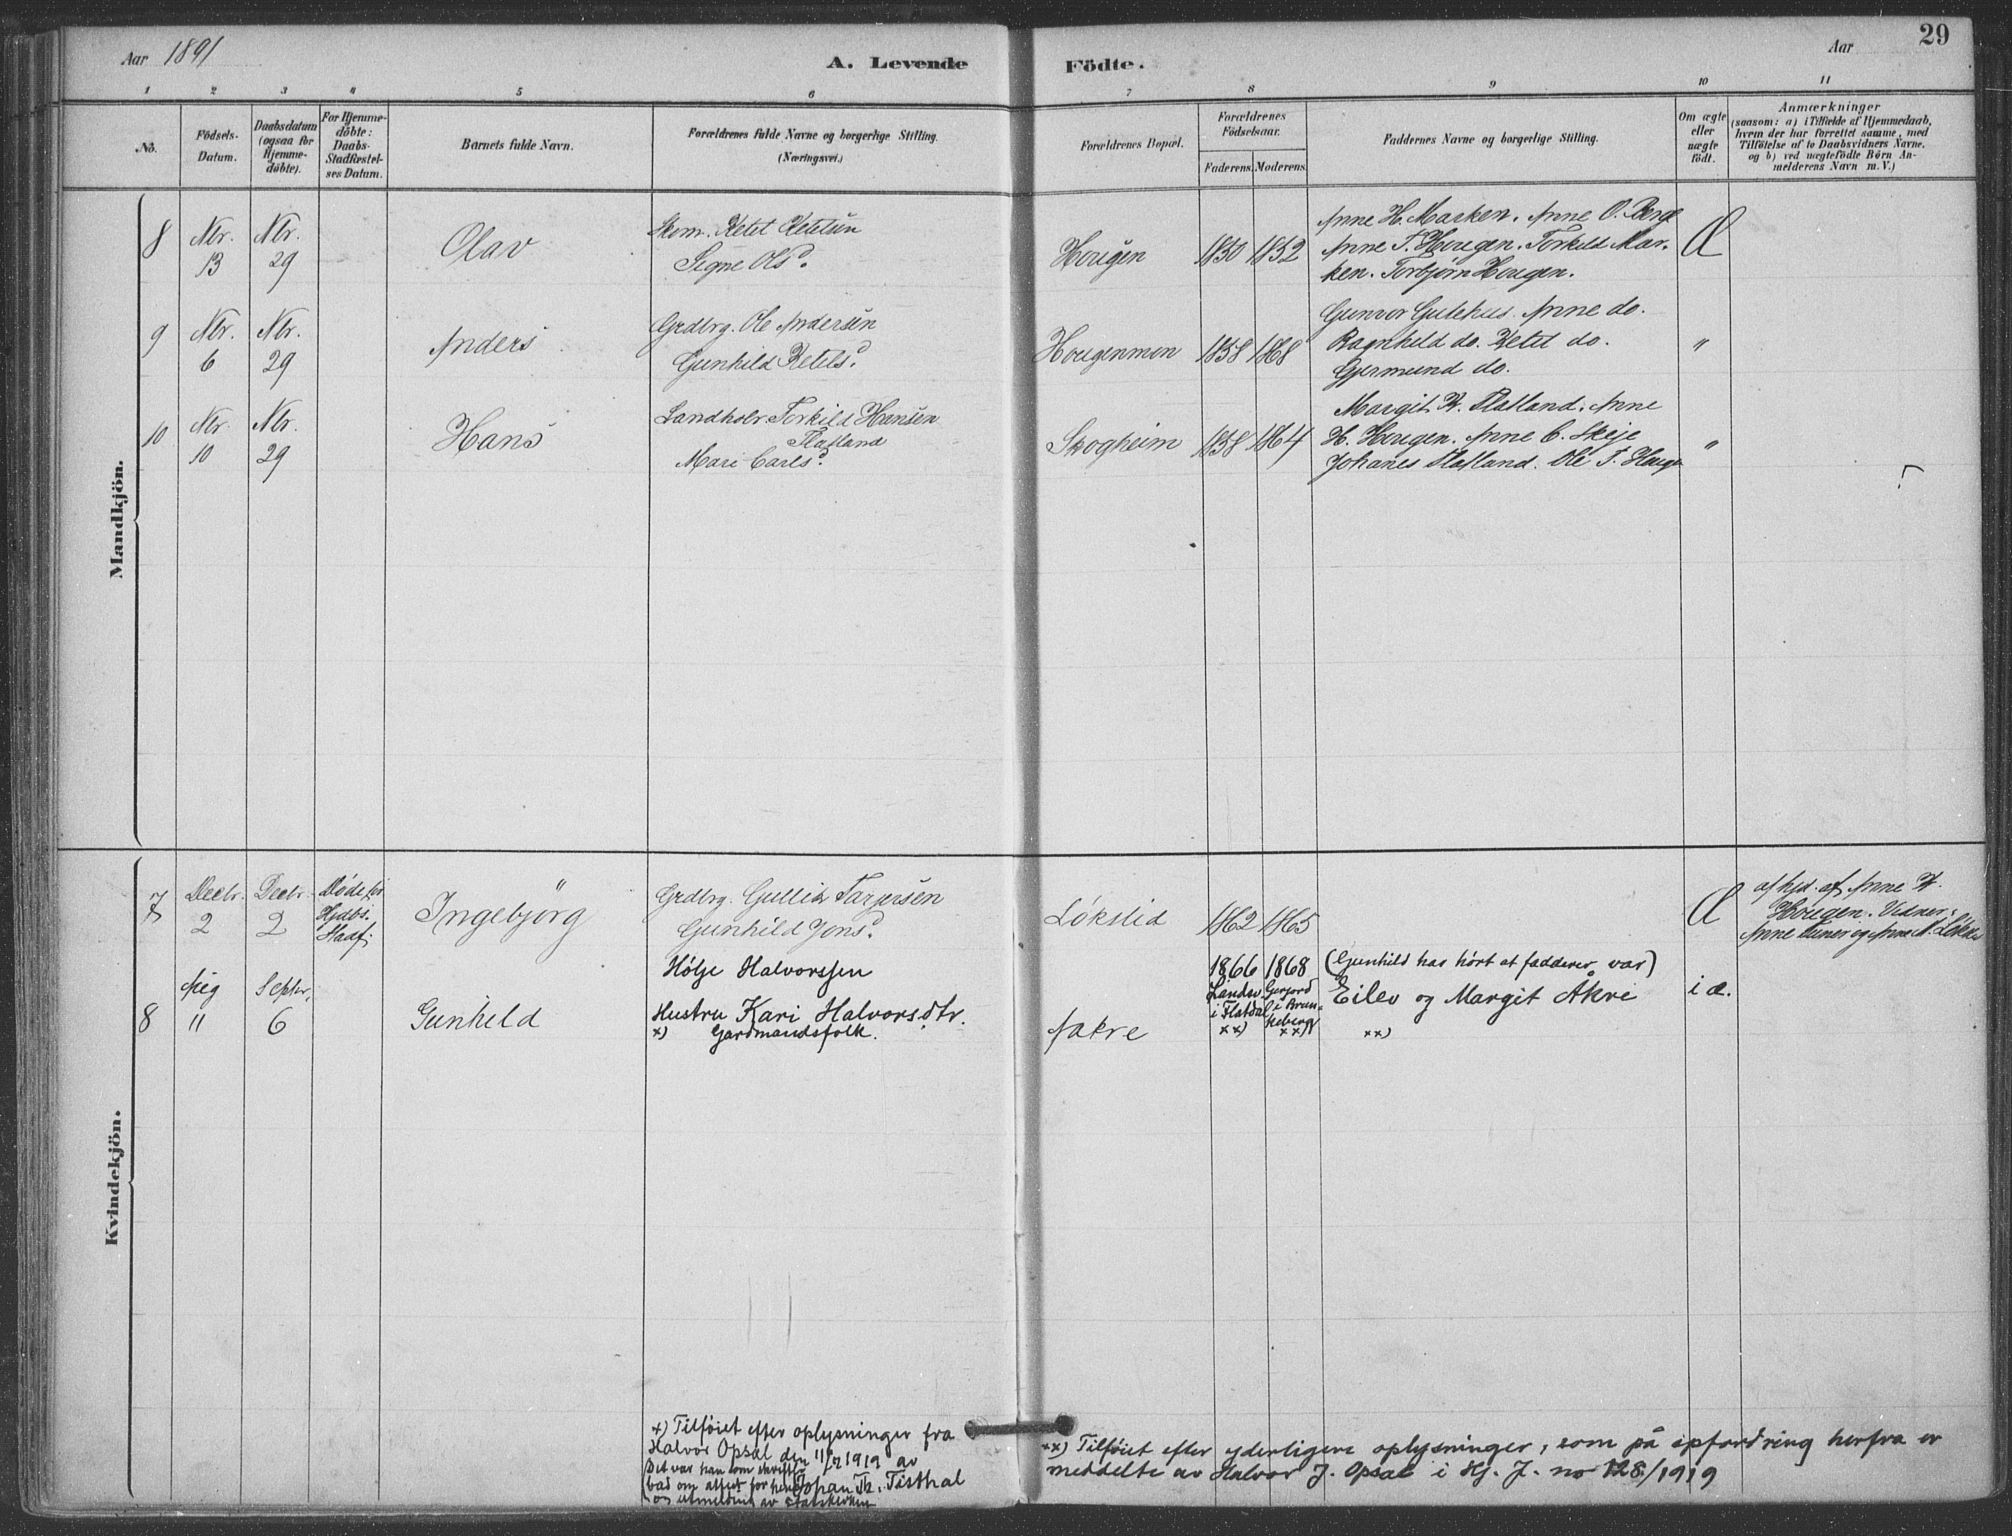 Aar 1891
A. Levende Födte.
Aar
29
1 2 3 4 5 6 7 8 9 10 11
No.
Födsels-Datum.
Daabsdatum (ogsaa for Hjemme-döbte).
For Hjemme-döbte: Daabs-Stadfæstel-ses Datum.
Barnets fulde Navn.
Forældrenes fulde Navne og borgerlige Stilling. (Næringsvei.)
Forældrenes Bopæl.
Forældrenes Födselsaar.
Faderens. Moderens.
Faddernes Navne og borgerlige Stilling.
Om ægte eller uægte födt.
Anmærkninger
(saasom: a) i Tilfælde af Hjemmedaab,
hvem der har forrettet samme, med
Tilföielse af to Daabsvidners Navne.
og b) ved uægtefödte Börn An-
melderens Navn m. V.)
Mandkjön.
8 Nbr. 13 Nbr. 29 Olav
Skom. Ketil Ketilsen
Signe Olsd.
Hougen 1850 1852
Anne H. Marken. Anne O. Berge
Anne T. Hougen. Torkild Mar-
ken. Torbjørn Hougen.
Æ
9 Nbr. 6 Nbr. 29 Anders
Grdbrg. Ole Andersen
Gunhild Ketilsd.
Hougenmon 1858 1868
Gunvor Gulehus. Anne do.
Ragnhild do. Ketil do.
Gjermund do.
"
10 Nbr. 10 Nbr. 29 Hans
Landholr. Torkild Hansen
Flatland
Mari Carlsd.
Skogheim 1858 1864
Margit K. Flatland. Anne
H. Hougen. Anne C. Skeje
Johanes Flatland. Ole T. Houge
"
Kvindekjön.
7 Decbr. 2 Decbr. 2 Døde før Hjdbs. Stadf. Ingebjørg
Grdbrg. Gullik Tarjersen
Gunhild Jonsd.
Løkslid 1862 1865
Æ
af hjd. af Anne K.
Hougen. Vidner:
8 Aug " Septr. 6 Gunhild
Hølje Halvorssen
Hustru Kari Halvorsdtr.
x) Gardmandsfolk.
Aakre
1866 Landsv. i Flatdal xx)
1868 Gerjord i Brun-keberg xx)
(Gunhild har hört at fadderer var)
Eilev og Margit Åkre
xx)
i æ.
x) Tilföiet efter oplysninger fra
Halvor Opsal den 11/7 1919 av
Johan Th. Tisthal
xx) Tilföiet efter yderligere oplysninger, som på opfordring herfra er
meddelte av Halvor J. Opsal i Hj. J. no 128/1919